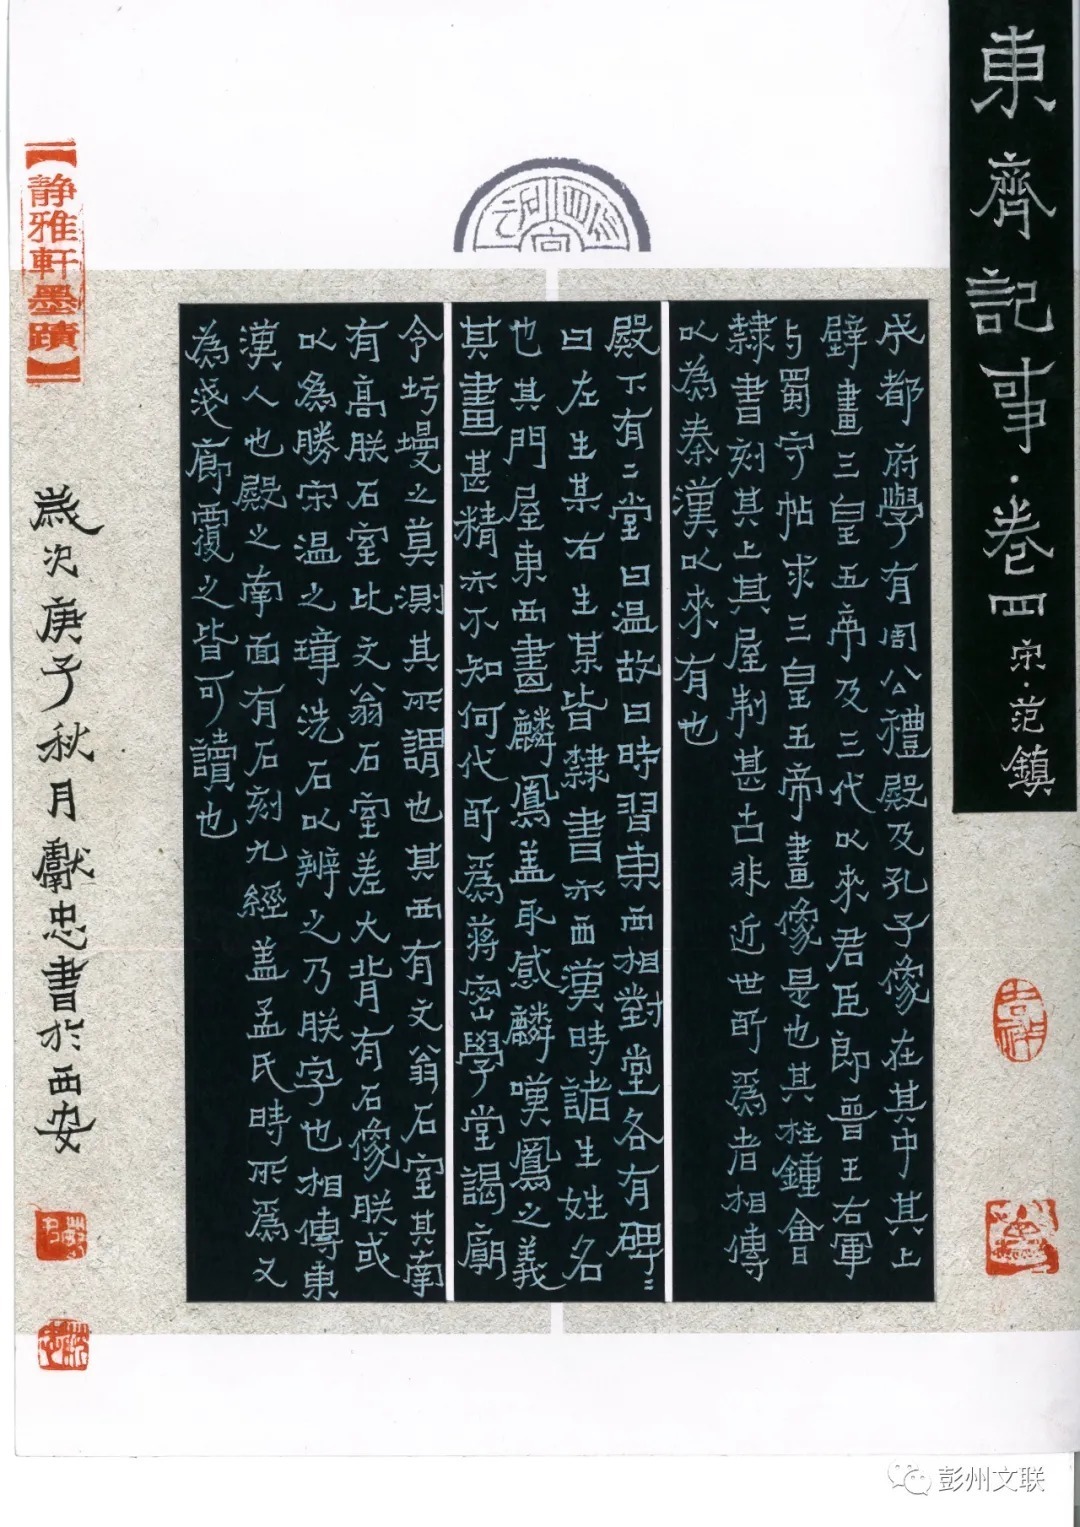 東齊記事·卷四 宋·范鎮
成都府學有周公禮殿及孔子像在其中其上
壁畫三皇五帝及三代以來君臣即晉王右軍
与蜀守帖求三皇五帝畫像是也其柱鍾會
隸書刻其上其屋制甚古非近世所為者相傳
以為秦漢以來有也
殿下有二堂曰温故曰時習東西相對堂各有碑〻
曰左生某右生某皆隸書亦西漢時諸生姓名
也其門屋東西畫麟鳳盖取感麟嘆鳳之義
其畫甚精亦不知何代所為蔣密學堂謁廟
令圬墁之莫測其所謂也其西有文翁石室其南
有高朕石室比文翁石室差大背有石像朕或
以為勝宋温之璋洗石以辨之乃朕字也相傳東
漢人也殿之南面有石刻九經盖孟氏時所為又
為淺廊覆之皆可讀也
【静雅軒墨蹟】
歲次庚子秋月獻忠書於西安
吉祥
彭州文联